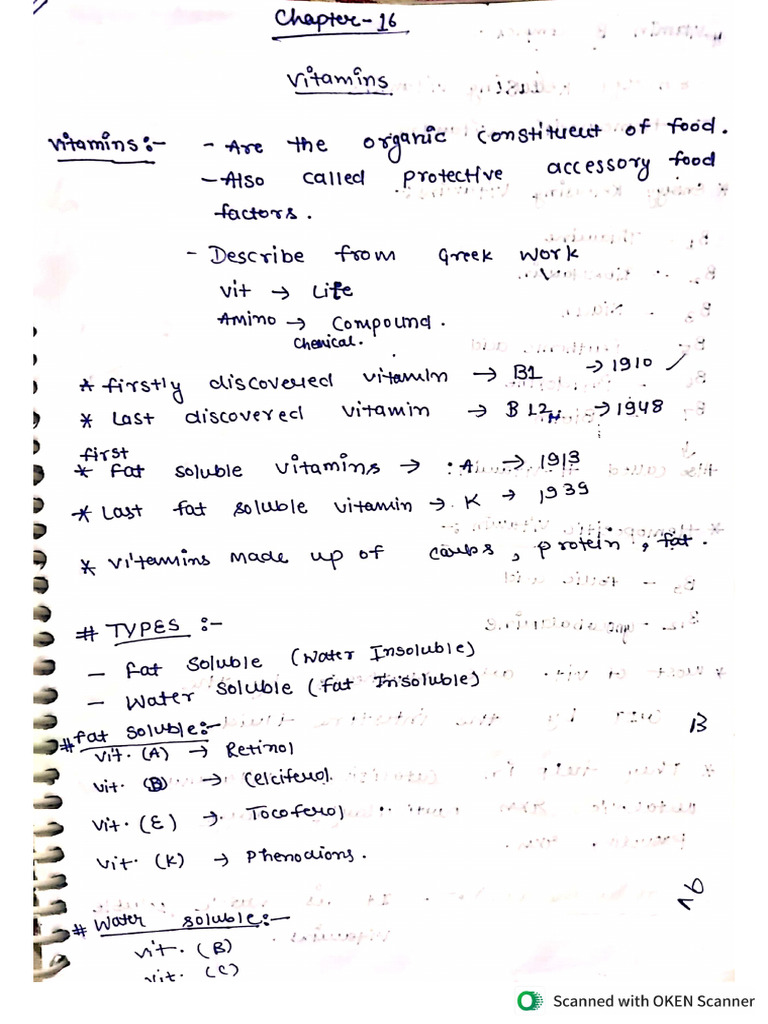 Chapter-16
Vitamins
Vitamins:- - Are the organic constituent of food.
- Also called protective accessory food
factors.
- Describe from Greek work
Vit → Life
Amino → Compound.
Chemical.
* firstly discovered vitamin → B1 → 1910 ✓
* Last discovered vitamin → B12 → 1948
first
* Fat soluble vitamins → : A → 1913
* Last fat soluble vitamin → K → 1939
* Vitamins made up of carbs, protein, fat.
# TYPES :-
- Fat soluble (Water Insoluble)
- Water soluble (fat Insoluble)
# fat soluble:-
vit. (A) → Retinol
vit. (D) → Celciferol.
vit. (E) → Tocoferol
vit. (K) → Phenodions.
B
16
# Water soluble:-
vit. (B)
vit. (C)
Scanned with OKEN Scanner